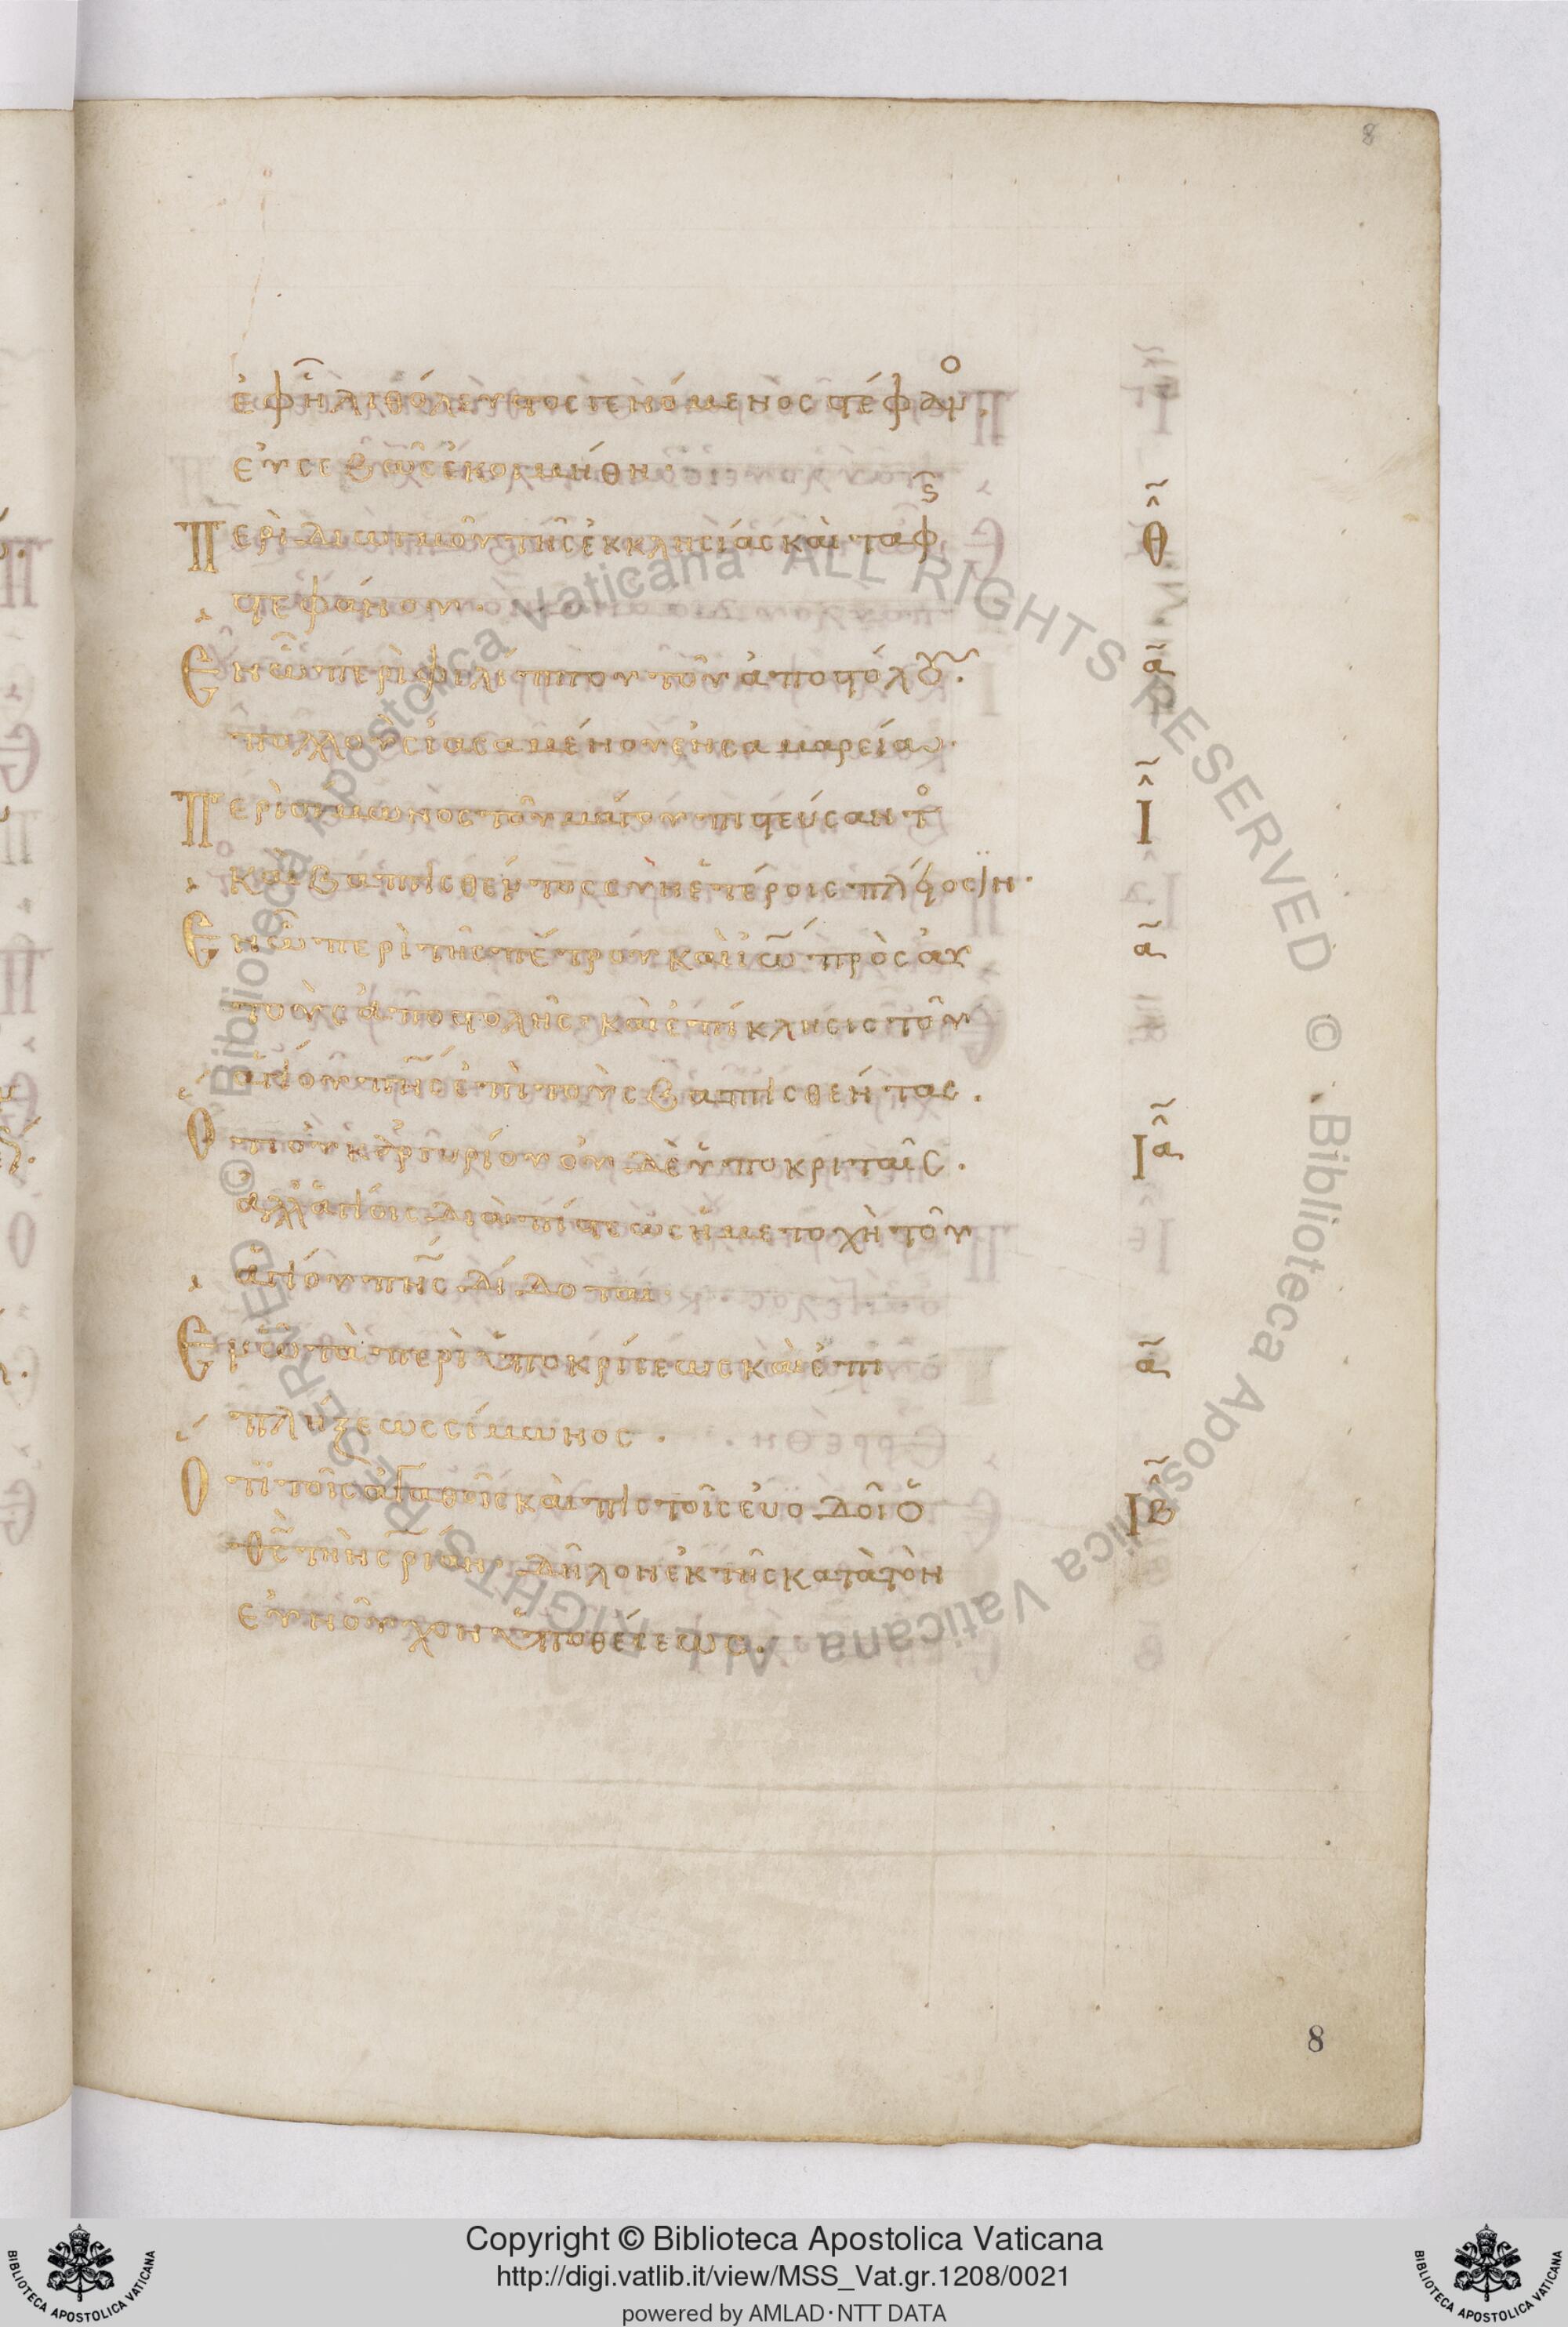 8
ἐφ ἧ λιθόλευστος γενόμενος στέφανο
εὐσεβῶς ἐκοσμήθη.
Περὶ διωγμοῦ τῆς ἐκκλησίας καὶ ταφῆς
Θ
στεφάνου.
Ἐν ᾧ περὶ φιλίππου τοῦ ἀποστόλου.
α
πολλοὺς ἰασαμένου ἐν σαμαρείαι.
Περὶ σίμωνος τοῦ μάγου πιστεύσαντο
Ι
καὶ βαπτισθέντος σὺν ἑτέροις πλείοσιν.
Ἐν ᾧ περὶ τῆς πέτρου καὶ ἰω πρὸς αὐ
α
τοὺς ἀποστολῆς. καὶ ἐπίκλησις τοῦ
ἁγίου πνς ἐπὶ τοὺς βαπτισθέντας.
Ὅτι οὐκ ἀργυρίου οὐδὲ ὑποκριταῖς.
Ια
ἀλλ ἁγίοις διὰ πίστεως ἡ μετοχὴ τοῦ
ἁγίου πνς δίδοται.
Ἐν ᾧ τὰ περὶ ὑποκρίσεως καὶ ἐπι
α
πλήξεως σίμωνος.
Ὅτι τοῖς ἀγαθοῖς καὶ πιστοῖς εὐοδοῖ ὁ
ΙΒ
θς τὴν σριαν. δῆλον ἐκ τῆς κατὰ τὸν
εὐνοῦχον ὑποθέσεως.
8
© Biblioteca Apostolica Vaticana ALL RIGHTS RESERVED © Biblioteca Apostolica Vaticana ALL RIGHTS RESERVED
Copyright © Biblioteca Apostolica Vaticana
http://digi.vatlib.it/view/MSS_Vat.gr.1208/0021
powered by AMLAD·NTT DATA
BIBLIOTECA APOSTOLICA VATICANA
BIBLIOTECA APOSTOLICA VATICANA